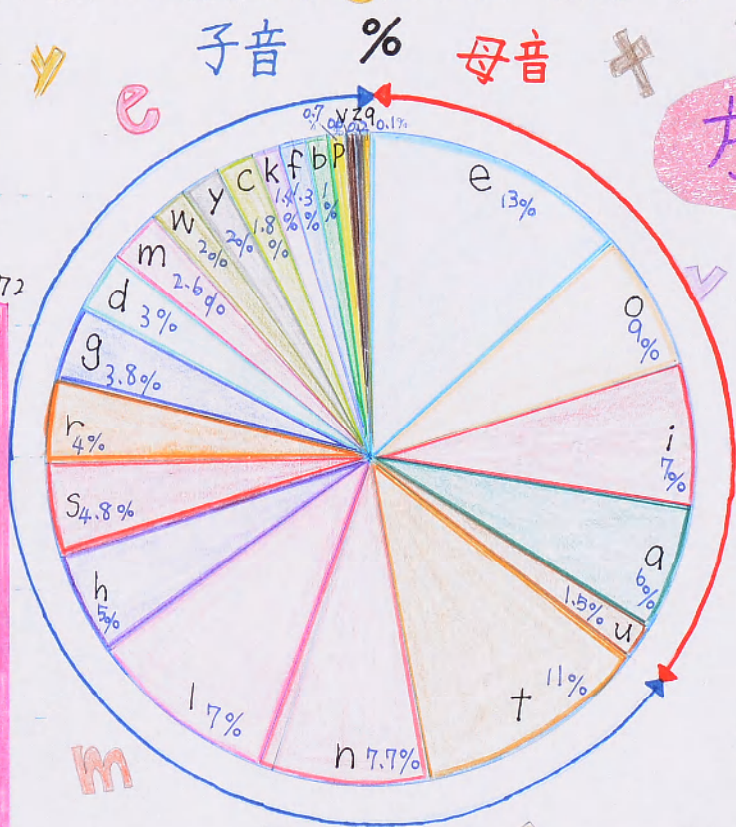 子音 % 母音
y
e
t
v
m
72
e 13%
o 9%
i 7%
a 6%
u 1.5%
t 11%
n 7.7%
l 7%
h 5%
s 4.8%
r 4%
g 3.8%
d 3%
m 2.6%
w 2%
y 2%
c 1.8%
k 1.4%
f 1.3%
b 1%
p 0.7%
v
z
q 0.1%